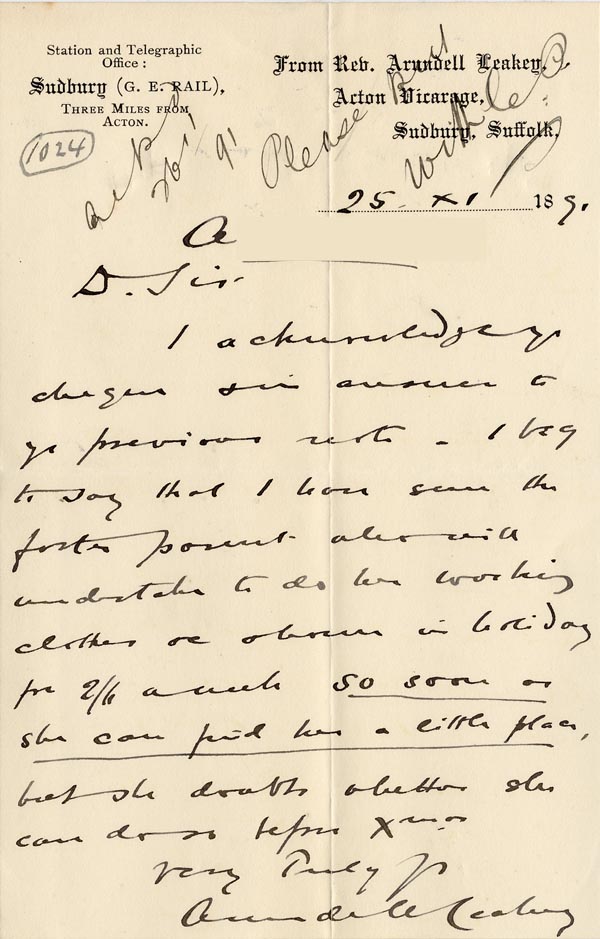 Station and Telegraphic
Office:
Sudbury (G. E. RAIL),
THREE MILES FROM
ACTON.
1024
From Rev. Arundell Leakey,
Acton Vicarage,
Sudbury, Suffolk,
Please
with
25. XI 1891.
D. Sir
I acknowledge yr
cheque in answer to
yr previous note - I beg
to say that I have seen the
foster parent who will
undertake to do her working
clothes & in holiday
for 2/6 a week so soon as
she can find her a little place,
but she doubts whether she
can do so before Xmas
Very Truly yr
Arundell Leakey